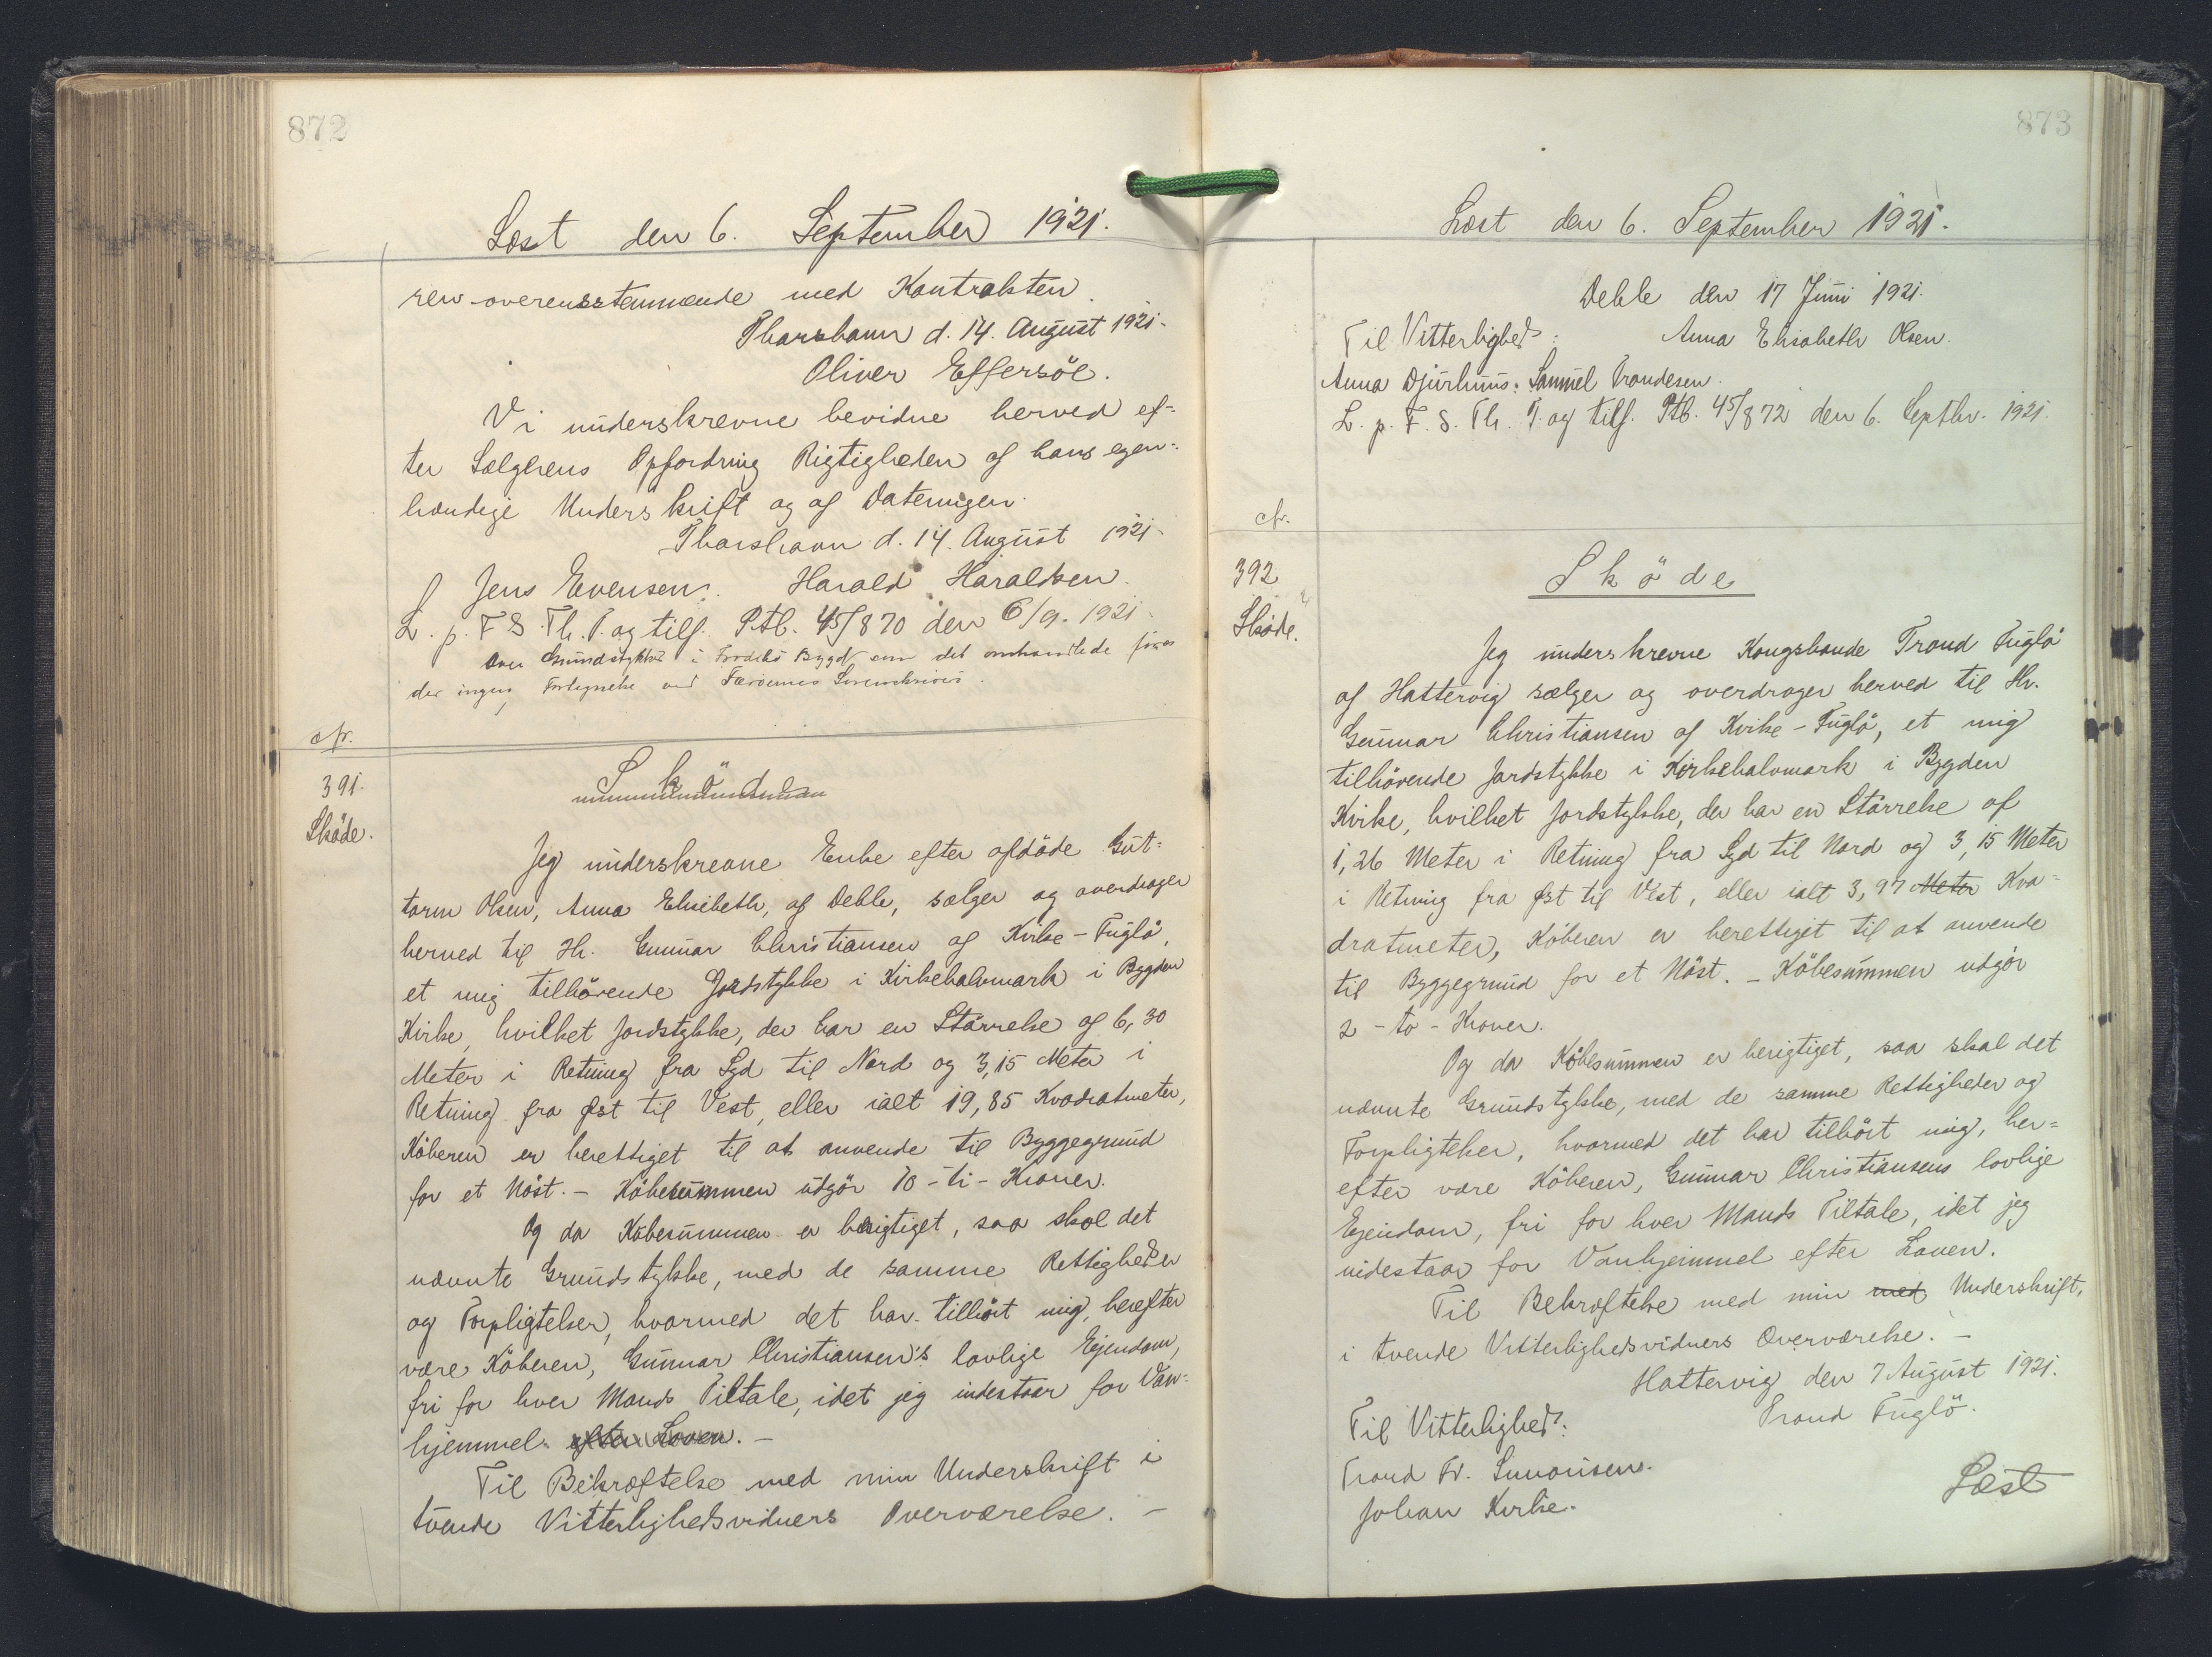 872
Læst den 6. September 1921.
ren overensstemmende med Kontrakten.
Thorshavn d. 14. August 1921.
Oliver Effersöe.
Vi underskrevne bevidne herved ef-
ter Sælgerens Opfordring Rigtigheden af hans egen-
hændige Underskrift og af Dateringen.
Thorshavn d. 14. August 1921.
Jens Evensen. Harald Haraldsen.
L. p. F. S. Th. P. og tilf. Ptb. 45/870 den 6/9. 1921.
Over Grundstykker i Frodebö Bygd som det omhandlede föres
der ingen Fortegnelse ved Færöernes Sorenskriveri.
afr.
391.
Sköde.
Sköde
Jeg underskrevne Enke efter afdöde Gut-
torm Olsen, Anna Elisebeth, af Deble, sælger og overdrager
herved til Hr. Gunnar Christiansen af Kirke-Fuglö,
et mig tilhörende Jordstykke i Kirkehalvmark i Bygden
Kirke, hvilket Jordstykke, der har en Störrelse af 6,30
Meter i Retning fra Syd til Nord og 3,15 Meter i
Retning fra Øst til Vest, eller ialt 19,85 Kvadratmeter,
Köberen er berettiget til at anvende til Byggegrund
for et Nöst. - Köbesummen udgör 10 - ti - Kroner.
Og da Köbesummen er berigtiget, saa skal det
nævnte Grundstykke, med de samme Rettigheder
og Forpligtelser, hvormed det har tilhört mig, herefter
være Köberen, Gunnar Christiansen's lovlige Ejendom,
fri for hver Mands Tiltale, idet jeg indestaar for Van-
hjemmel efter Loven. -
Til Bekræftelse med min Underskrift i
tvende Vitterlighedsvidners Overværelse. -
873
Læst den 6. September 1921.
Deble den 17 Juni 1921.
Til Vitterlighed: Anna Elisabeth Olsen.
Anna Djurhuus. Samuel Trondesen.
L. p. F. S. Th. P. og tilf. Ptb. 45/872 den 6. Septbr. 1921.
afr.
392
Sköde.
Sköde
Jeg underskrevne Kongsbonde Trond Fuglö
af Hattervig sælger og overdrager herved til Hr.
Gunnar Christiansen af Kirke-Fuglö, et mig
tilhörende Jordstykke i Kirkehalvmark i Bygden
Kirke, hvilket Jordstykke, der har en Störrelse af
1,26 Meter i Retning fra Syd til Nord og 3,15 Meter
i Retning fra Øst til Vest, eller ialt 3,97 Meter Kva-
dratmeter, Köberen er berettiget til at anvende
til Byggegrund for et Nöst. - Köbesummen udgör
2 - to - Kroner.
Og da Köbesummen er berigtiget, saa skal det
nævnte Grundstykke, med de samme Rettigheder og
Forpligtelser, hvormed det har tilhört mig, her-
efter være Köberen, Gunnar Christiansens lovlige
Ejendom, fri for hver Mands Tiltale, idet jeg
indestaar for Vanhjemmel efter Loven.
Til Bekræftelse med min med Underskrift,
i tvende Vitterlighedsvidners Overværelse. -
Hattervig den 7 August 1921.
Til Vitterlighed: Trond Fuglö.
Trond Fr. Simonsen.
Johan Kirke.
Læst